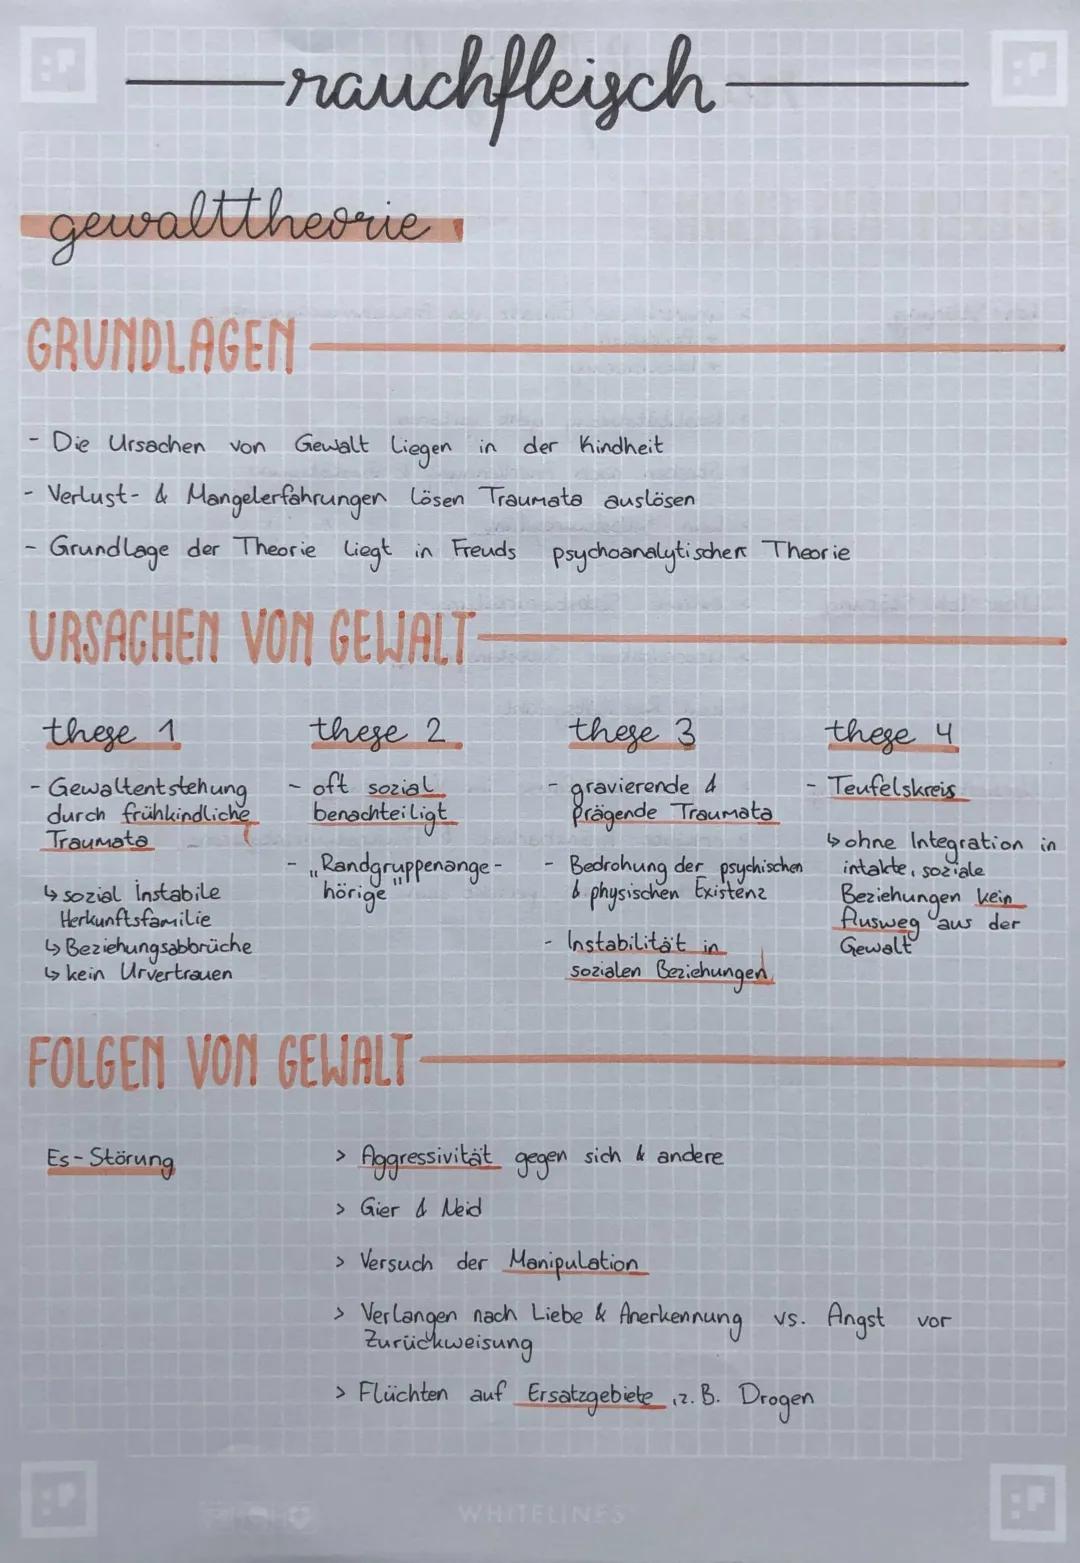 rauchfleisch
gewalttheorie
GRUNDLAGEN
- Die Ursachen von Gewalt liegen in der Kindheit
- Verlust- & Mangelerfahrungen lösen Traumata auslösen
- Grundlage der Theorie liegt in Freuds psychoanalytischen Theorie
URSACHEN VON GEWALT
these 1
- Gewaltentstehung
durch frühkindliche
Traumata
↳ sozial instabile
Herkunftsfamilie
↳ Beziehungsabbrüche
↳ kein Urvertrauen
these 2
- oft sozial
benachteiligt
- „Randgruppenange-
hörige"
these 3
- gravierende &
prägende Traumata
- Bedrohung der psychischen
& physischen Existenz
- Instabilität in
sozialen Beziehungen
these 4
- Teufelskreis
↳ ohne Integration in
intakte, soziale
Beziehungen kein
Ausweg aus der
Gewalt
FOLGEN VON GEWALT
Es-Störung
> Aggressivität gegen sich & andere
> Gier & Neid
> Versuch der Manipulation
> Verlangen nach Liebe & Anerkennung vs. Angst vor
Zurückweisung
> Flüchten auf Ersatzgebiete, z.B. Drogen
WHITELINES